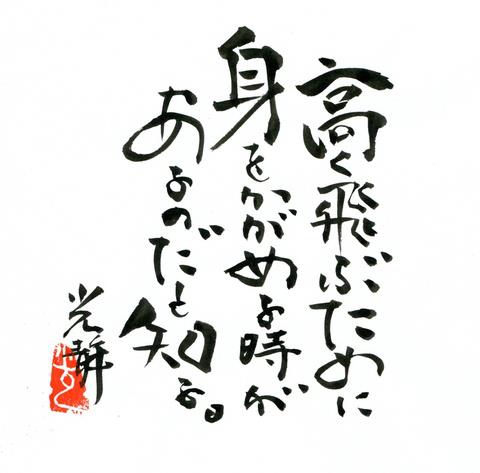 高く飛ぶために
身をかがめる時が
あるのだと知る。
光静